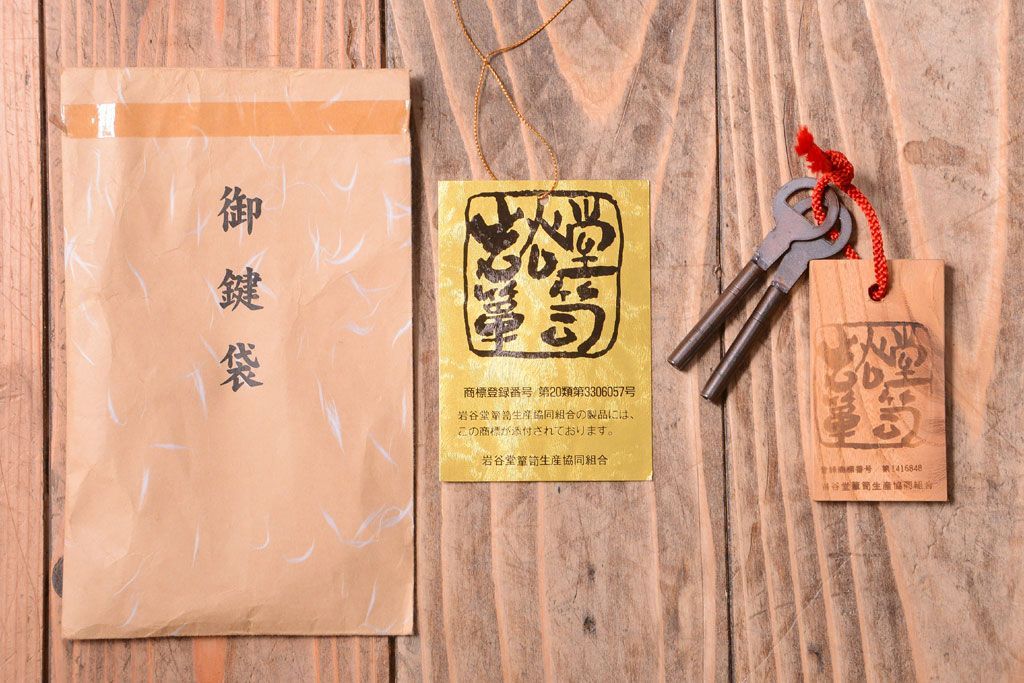 御鍵袋
岩谷堂
箪笥
商標登録番号 第20類第3306057号
岩谷堂箪笥生産協同組合の製品には、
この商標が添付されております。
岩谷堂箪笥生産協同組合
岩谷堂
箪笥
登録商標番号 第1416848
岩谷堂箪笥生産協同組合